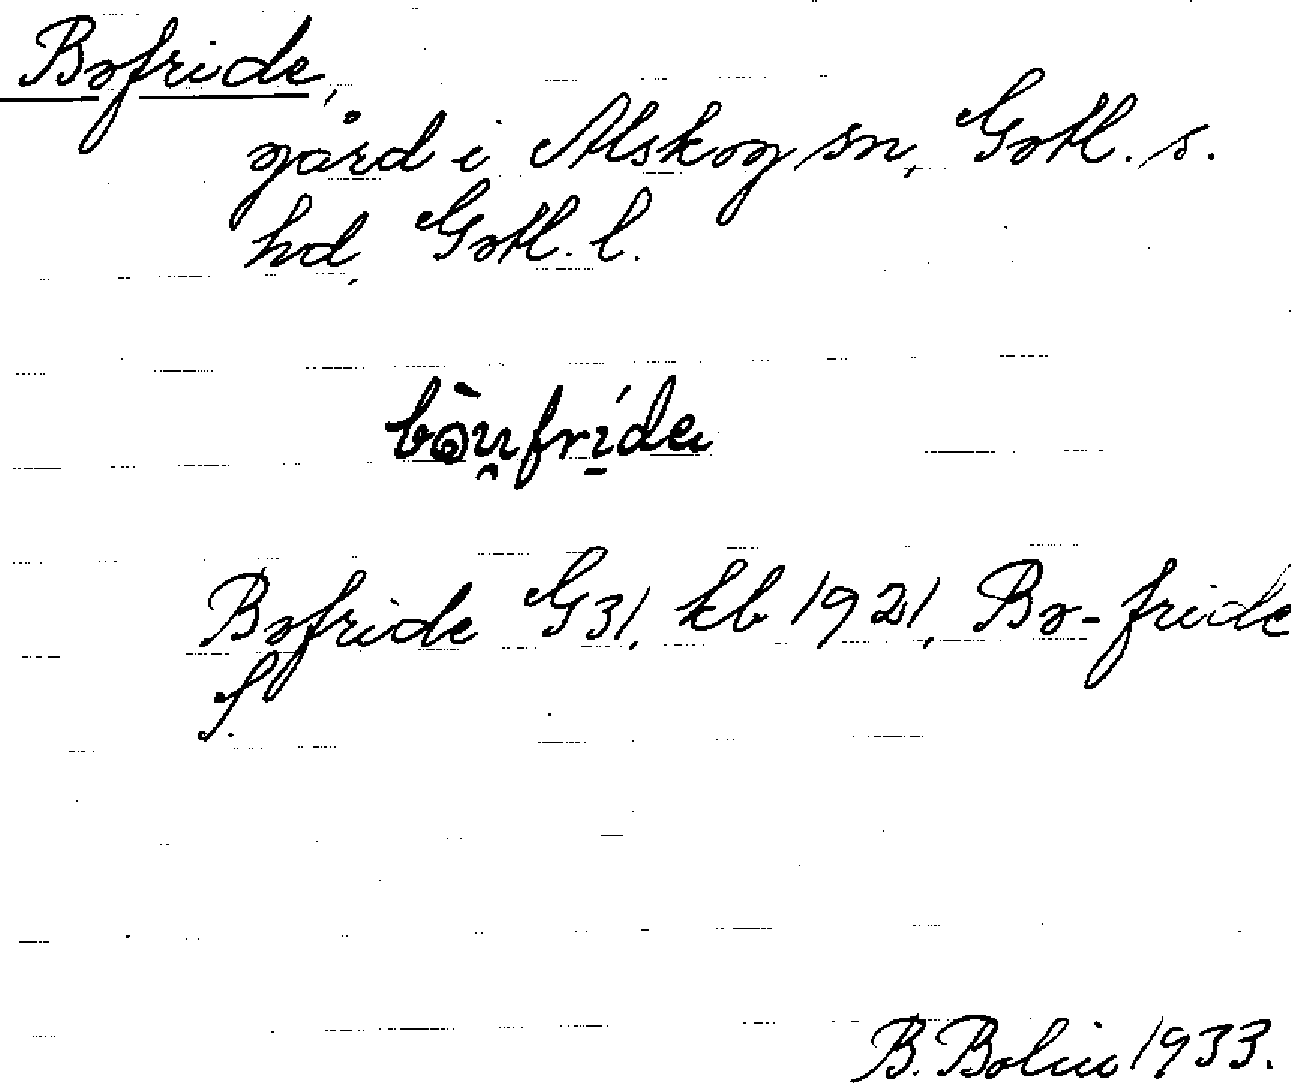 Bofride,
gård i Alskog sn, Gotl. s.
hd, Gotl. l.
bòu̯frı́de
Bofride G31, kb 1921, Bo-fride
S.
B. Bolin 1933.